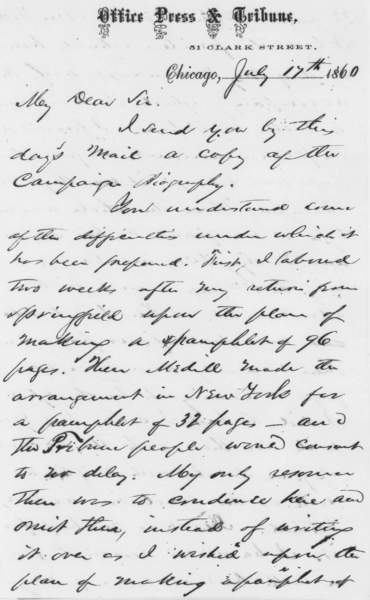 Office Press & Tribune,
51 CLARK STREET.
Chicago, July 17th 1860
My Dear Sir.
I send you by this
day's mail a copy of the
Campaign Biography.
You understand some
of the difficulties under which it
has been prepared. First, I labored
two weeks after my return from
Springfield upon the plan of
making a pamphlet of 96
pages. Then Medill made the
arrangement in New York for
a pamphlet of 32 pages — and
the Tribune people would consent
to no delay. My only resource
then was to condence here and
omit there, instead of writing
it over as I wished upon the
plan of making a pamphlet of